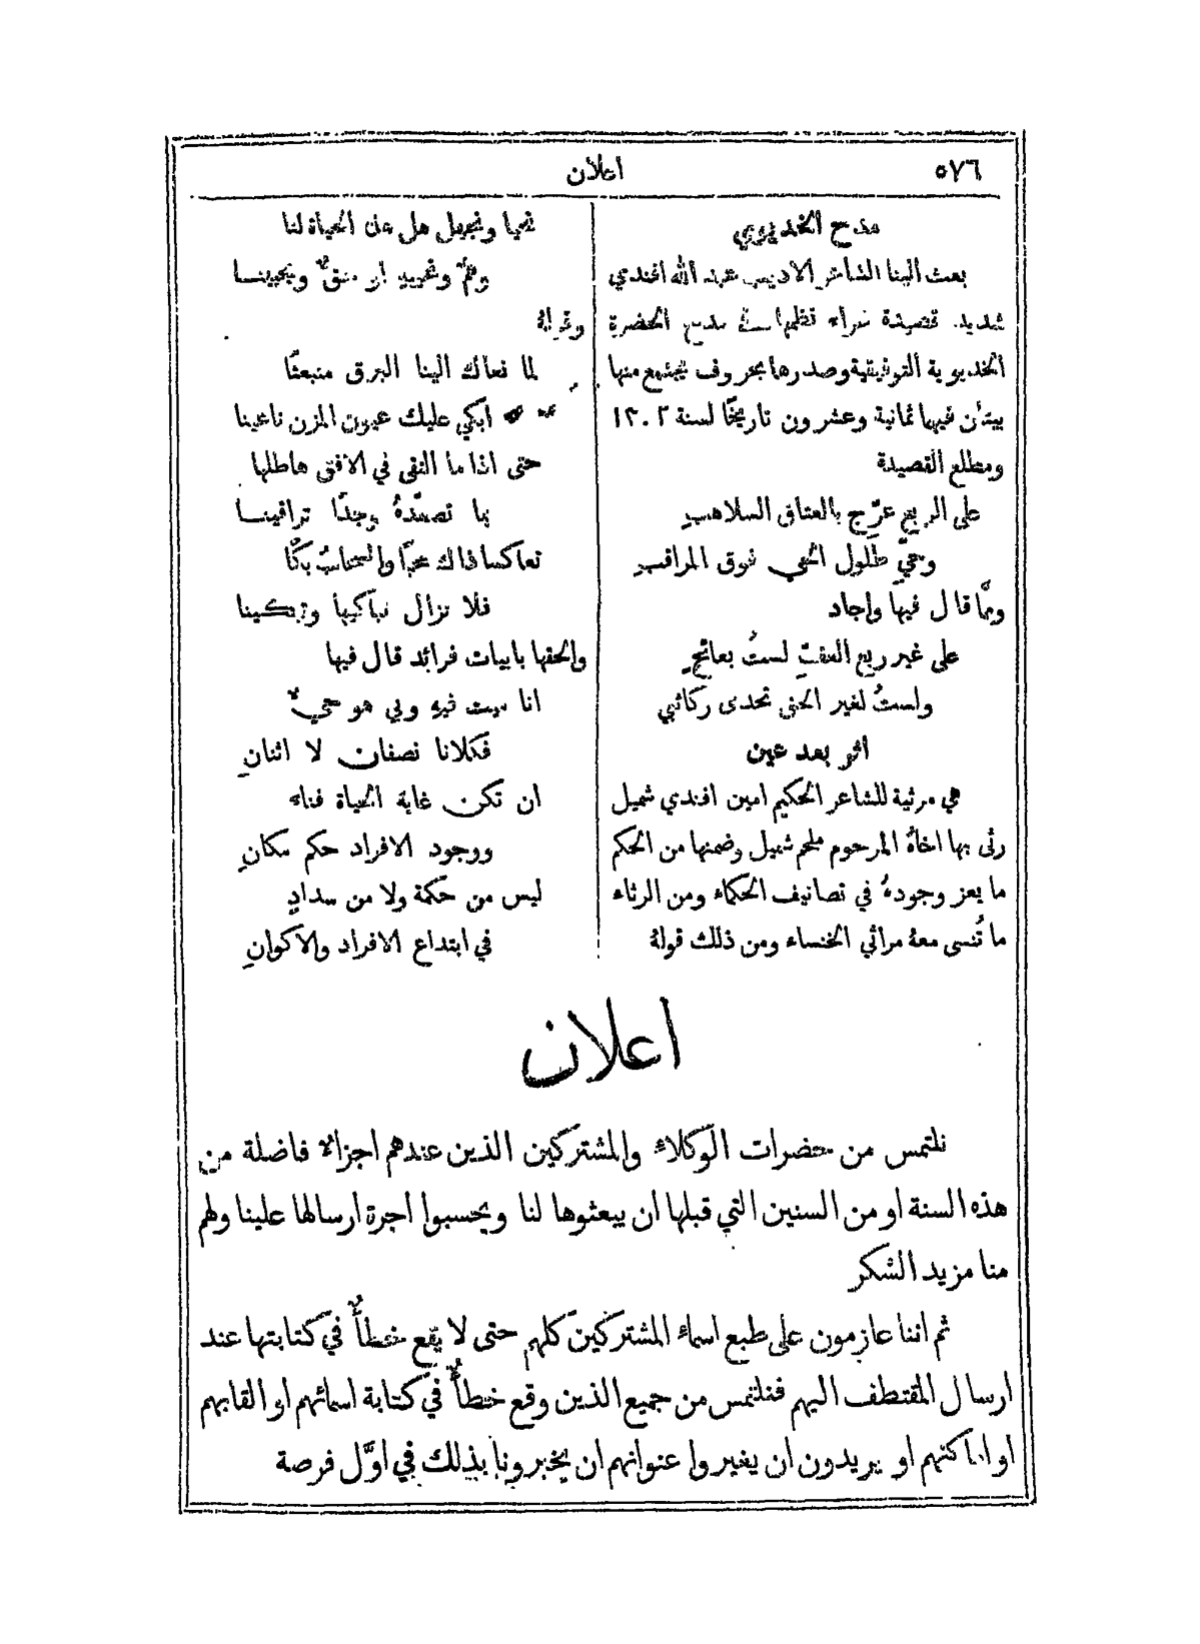 ٥٧٦
اعلان
مدح الخديوي
بعث الينا الشاعر الاديب عبد الله افندي
شديد قصيدة غراء نظمها في مديح الحضرة
الخديوية التوفيقية وصدرها بحروف يجتمع منها
بيتان فيها ثمانية وعشرون تاريخًا لسنة ١٣٠٢
ومطلع القصيدة
على الربع عرّج بالعتاق السلاهبِ
وحيّ طلول الحي فوق المراقبِ
وممَّا قال فيها واجاد
على غير ربع المفتِ لستُ بعائجٍ
ولستُ لغير الحي تحدى ركائبي
أثر بعد عين
هي مرثية للشاعر الحكيم امين افندي شميل
رثى بها اخاهُ المرحوم ملحم شميل وضمنها من الحكم
ما يعز وجودهُ في تصانيف الحكماء ومن الرثاء
ما تُنسى معهُ مراثي الخنساء ومن ذلك قولهُ
نحيا ونجهل هل عين الحياة لنا
وهمٌ وتحييد او حقٌّ ويحيينا
وقولهُ
لما نعاك الينا البرق منبعثًا
ابكي عليك عيون المزن ناعينا
حتى اذا ما التقى في الافق هاطلها
بما تصعّدهُ وجدًا تراقينا
تعاكسا فاك عبًا والسحاب بكًا
فلا نزال نباكيها وتبكينا
والحقها بابيات فرائد قال فيها
انا ميت فيهِ وبي هو حيٌّ
فكلانا نصفان لا اثنانِ
ان تكن غاية الحياة فناء
ووجود الافراد حكم مكانِ
ليس من حكمة ولا من سدادٍ
في ابتداع الافراد والاكوانِ
اعلان
نلتمس من حضرات الوكلاء والمشتركين الذين عندهم اجزاء فاضلة من
هذه السنة او من السنين التي قبلها ان يبعثوها لنا ويحسبوا اجرة ارسالها علينا ولهم
منا مزيد الشكر
ثم اننا عازمون على طبع اسماء المشتركين كلهم حتى لا يقع خطأٌ في كتابتها عند
ارسال المقتطف اليهم فنلتمس من جميع الذين وقع خطأٌ في كتابة اسمائهم او القابهم
او اماكنهم او يريدون ان يغيروا عنوانهم ان يخبرونا بذلك في اوَّل فرصة